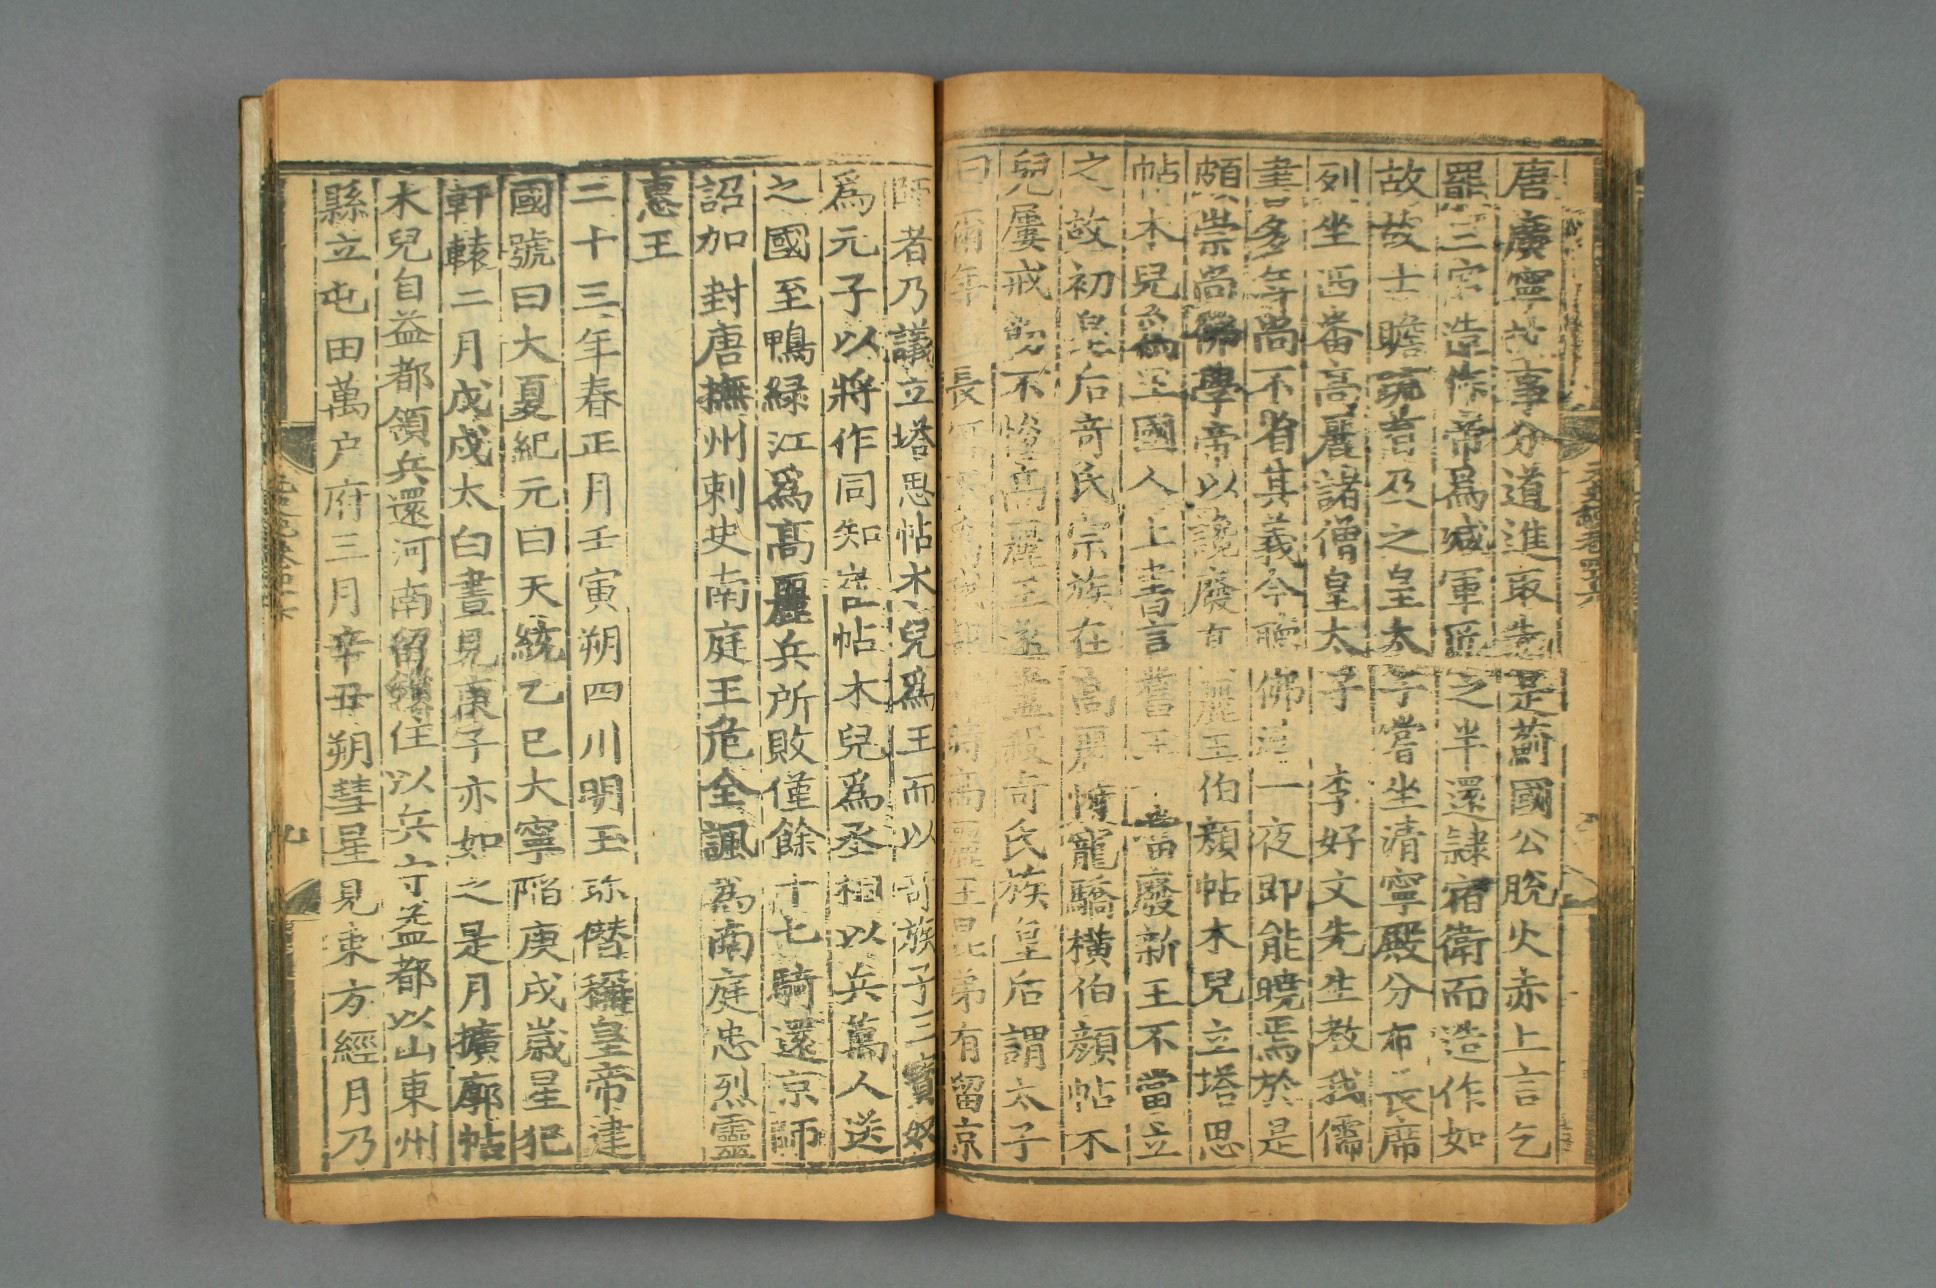 唐廣寧等事分道進取先是薊國公脫火赤上言乞
罷三宮造作帝爲減軍匠之半還隸宿衛而造作如
故故士瞻疏首及之皇太子嘗坐清寧殿分布長席
列坐西番高麗諸僧皇太子 李好文先生教我儒
書多年尚不省其義今聽佛法一夜即能曉焉於是
頗崇尚佛學帝以讒廢高麗王伯顏帖木兒立塔思
帖木兒爲王國人上書言舊王 當廢新王不當立
之故初皇后奇氏宗族在高麗恃寵驕橫伯顏帖不
兒屢戒飭不悛高麗王遂盡殺奇氏族皇后謂太子
曰爾年 長 時高麗王昆弟有留京
師者乃議立塔思帖木兒爲王而以奇族子三寶奴
爲元子以將作同知崔帖木兒爲丞相以兵萬人送
之國至鴨綠江爲高麗兵所敗僅餘十七騎還京師
詔加封唐撫州刺史南庭王危全諷爲南庭忠烈靈
惠王
二十三年春正月壬寅朔四川明玉珍僭稱皇帝建
國號曰大夏紀元曰天統乙巳大寧陷庚戌歲星犯
軒轅二月戊戌太白晝見庚子亦如之是月擴廓帖
木兒自益都領兵還河南留鎖住以兵守益都以山東州
縣立屯田萬户府三月辛丑朔彗星見東方經月乃
九